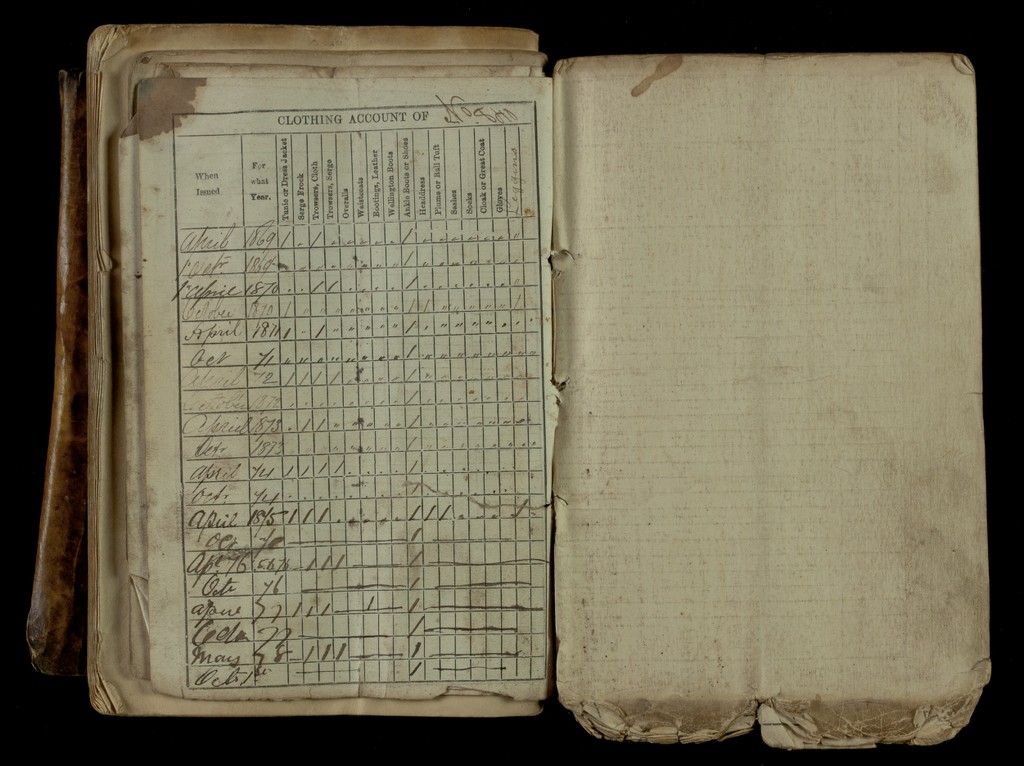 CLOTHING ACCOUNT OF No
When Issued
For what Year.
Tunic or Dress Jacket
Serge Frock
Trowsers, Cloth
Trowsers, Serge
Overalls
Waistcoats
Bootings, Leather
Wellington Boots
Ankle Boots or Shoes
Headdress
Plume or Ball Tuft
Sashes
Socks
Cloak or Great Coat
Gloves
Leggons
April 1869 1 " 1 " " " " " 1 " " " " " " "
1869 1
1 April 1870 1 1 1
October 1870 1 1 1 1 1
April 1871 1 1 1
Oct 71 1
April 72 1 1 1 1 1
October 1872 1
April 1873 1 1 1
1873 1
April 74 1 1 1 1 1
Octr 74 1
April 1875 1 1 1 1 1 1 1
Oct 1
Apl 76 1 1 1 1
Oct 76 1
April 77 1 1 1 1 1
77 1
May 78 1 1 1 1
Oct 1st 1